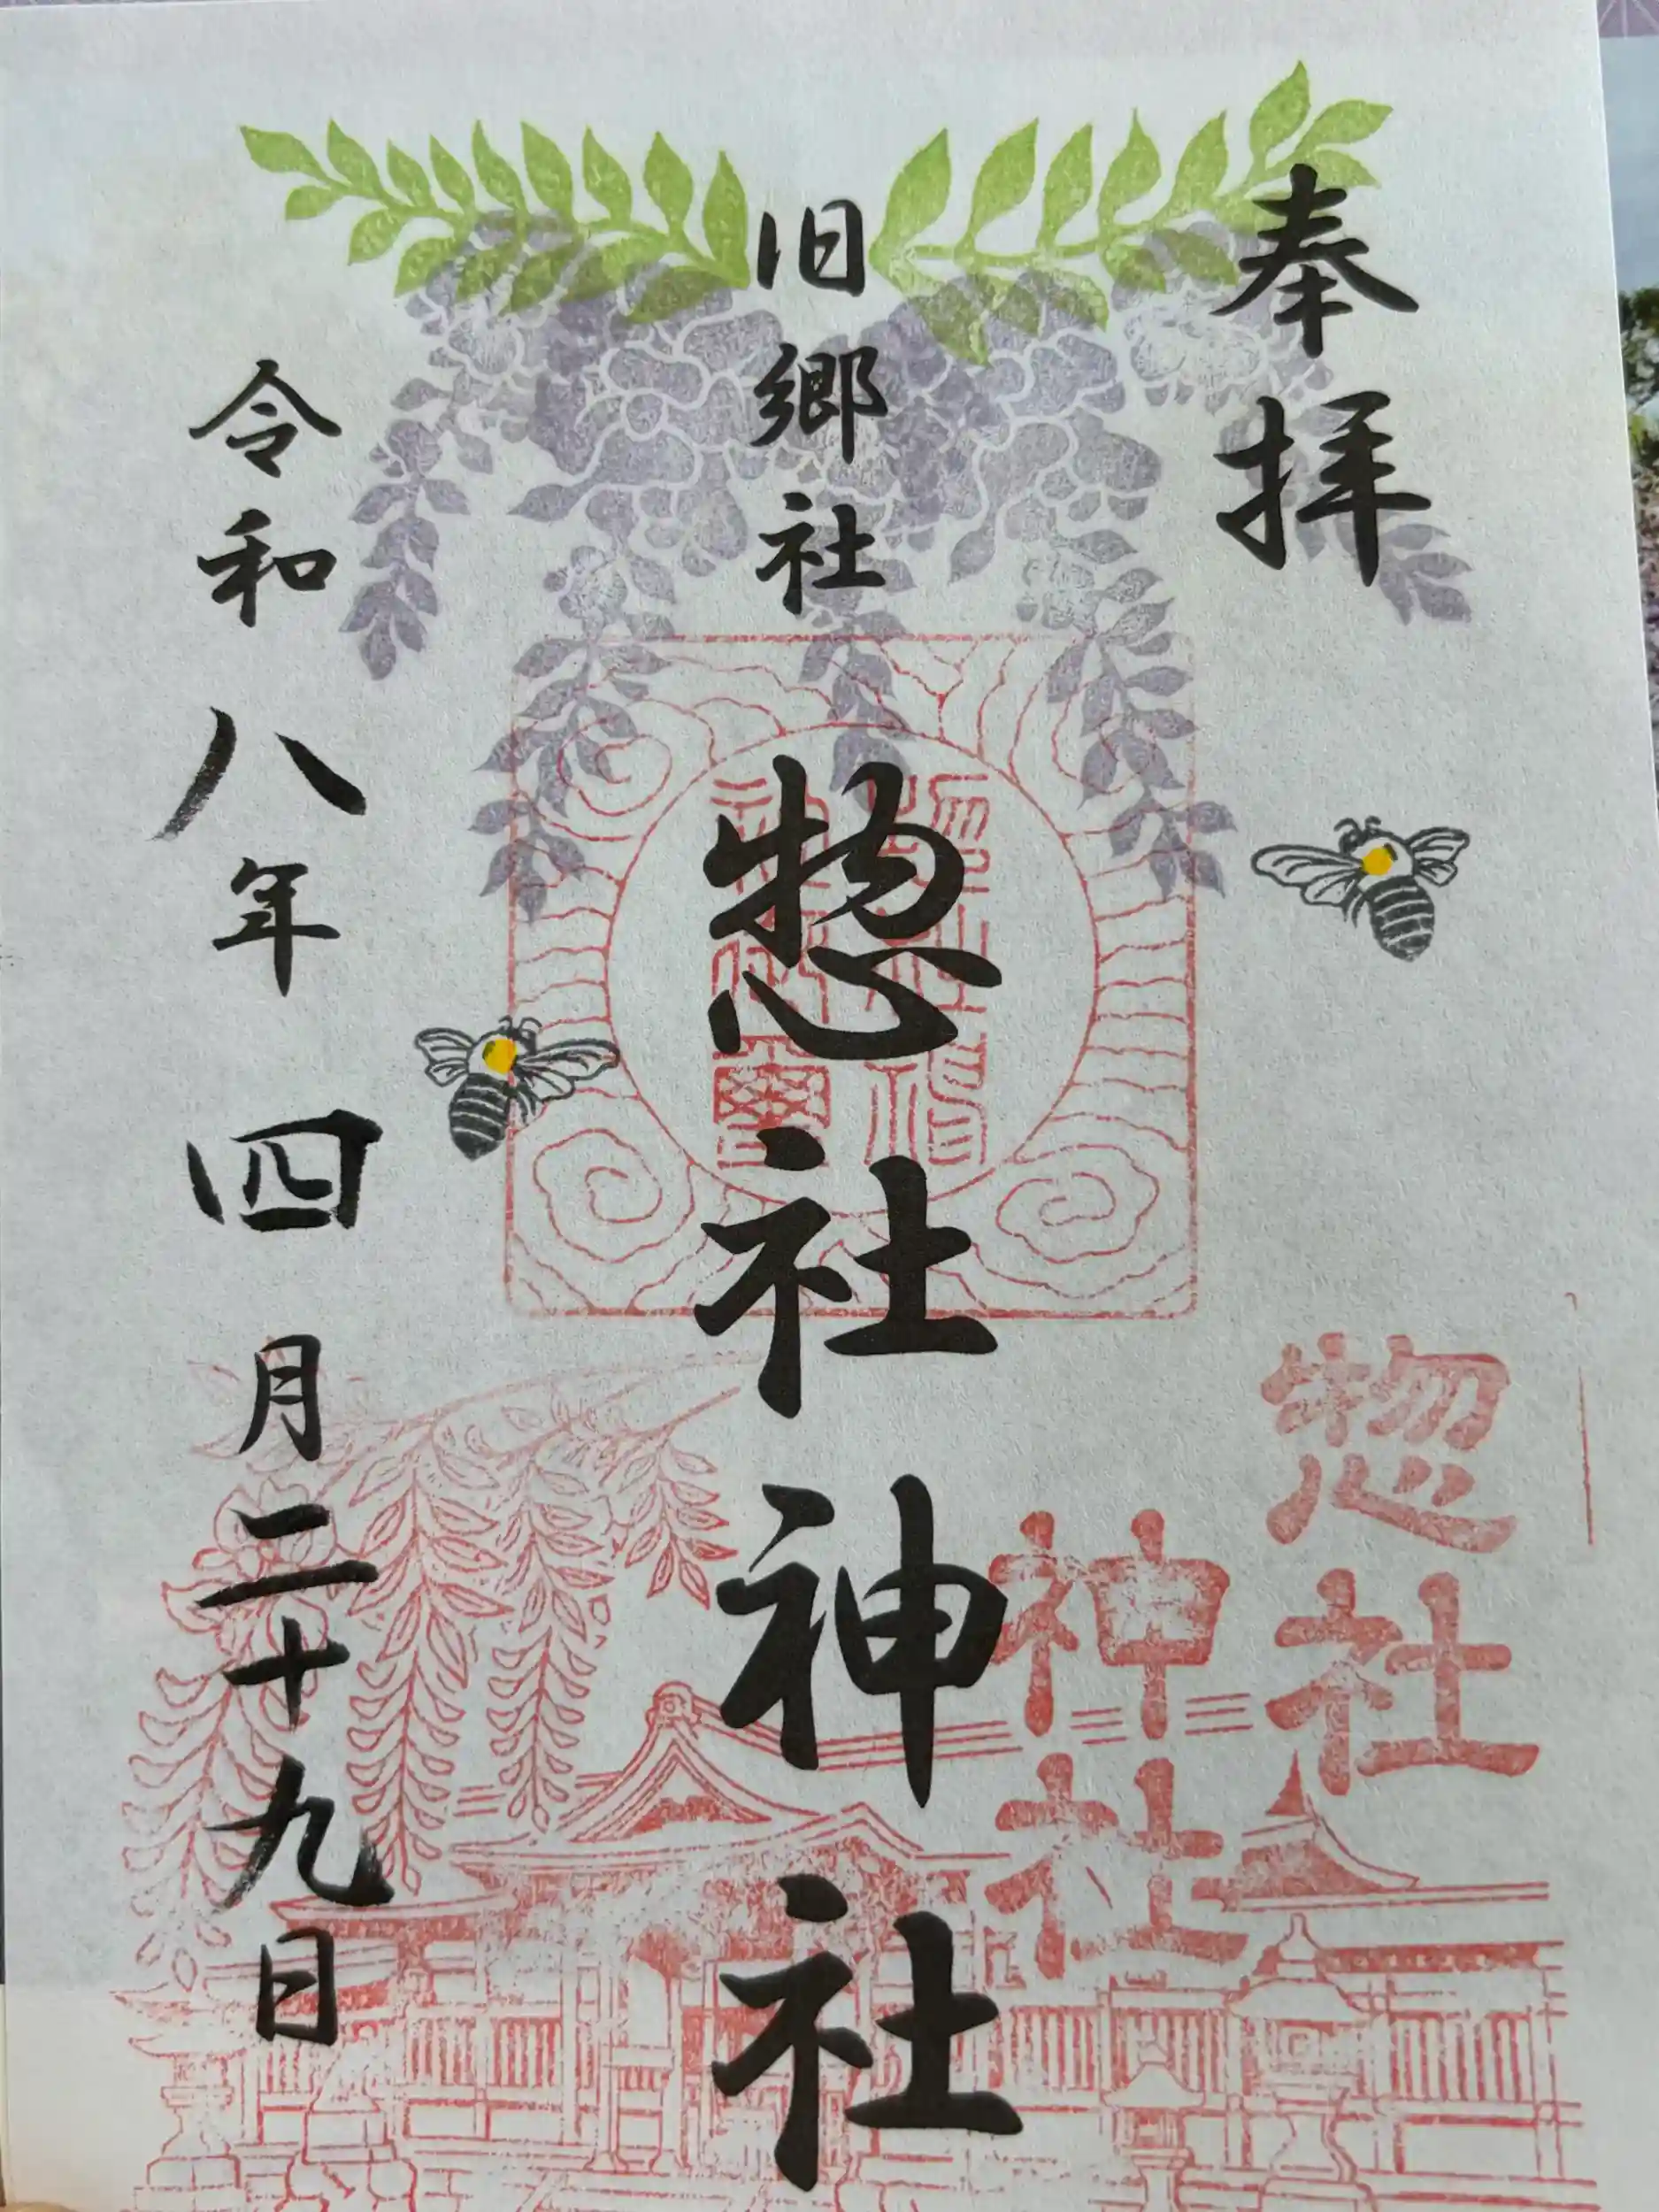 奉拝
旧郷社
惣社神社
惣社
神社
令和八年四月二十九日